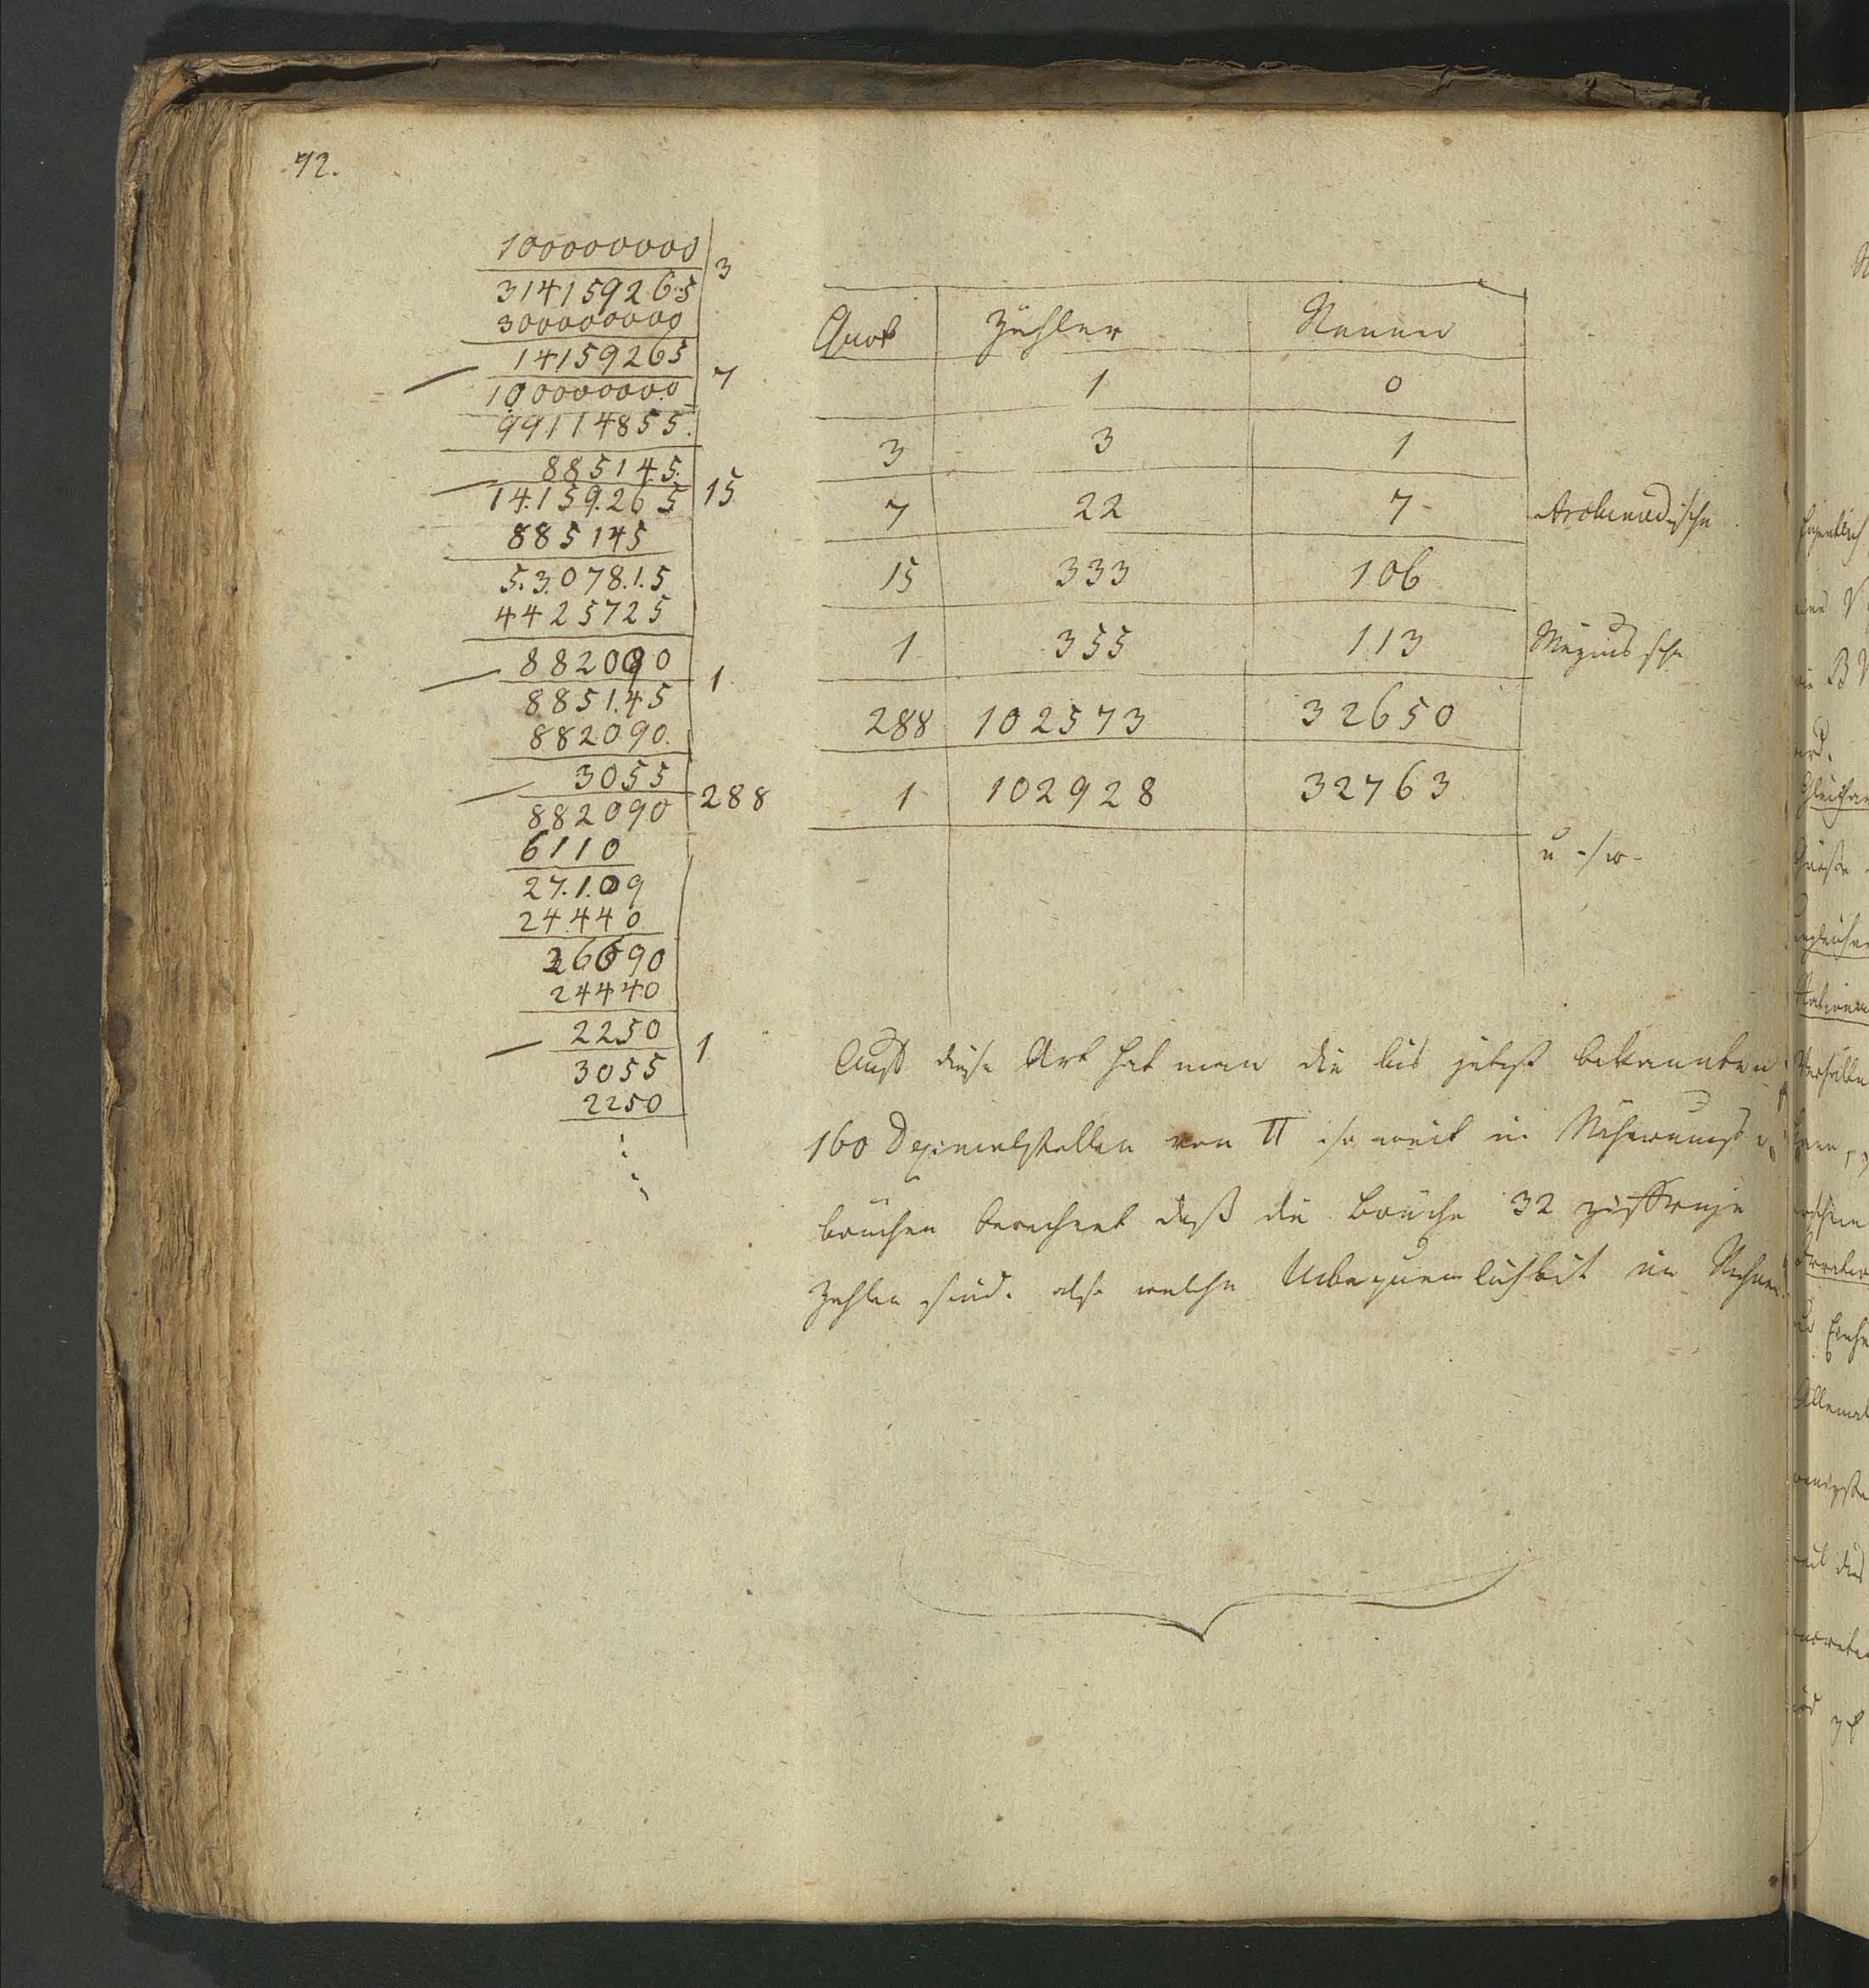 92.
100000000 | 3
314159265
300000000
14159265 | 7
100000000
99114855
885145 | 15
14.159.265
885145
5.3.078.1.5
4425725
882090 | 1
885145
882090
3055 | 288
882090
6110
27.1.09
24440
26690
24440
2250 | 1
3055
2250
Quot Zähler Nenner
1 0
3 3 1
7 22 7 Archimedische
15 333 106
1 355 113 Mezius sche
288 102573 32650
1 102928 32763
u. s. w.
Auf diese Art hat man die bis jetzt bekannten
160 Dezimalstellen von π so weit in Näherungs
brüchen berechnet daß die Brüche 32 zifferige
Zahlen sind. also welche Unbequemlichkeit im Rechnen